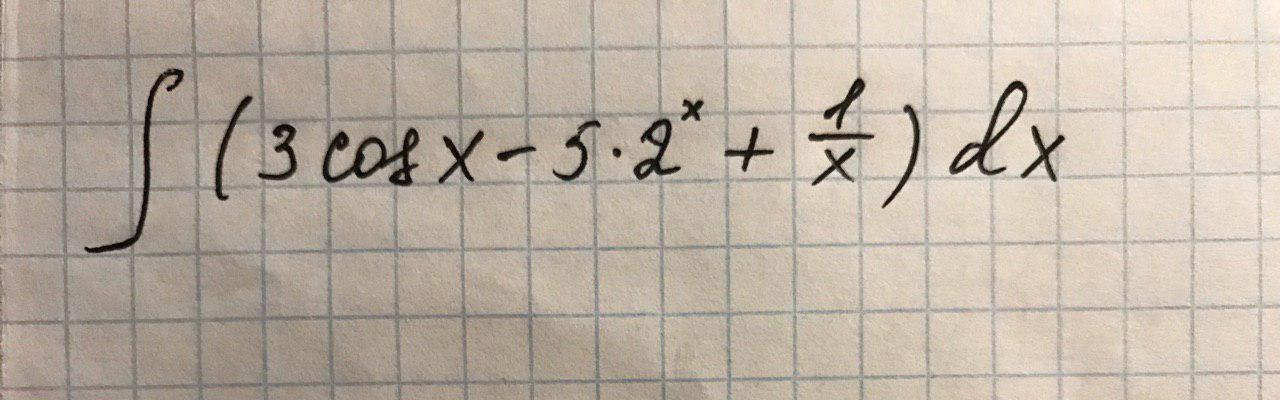 ∫ (3 cos x - 5 · 2^x + 1/x) dx